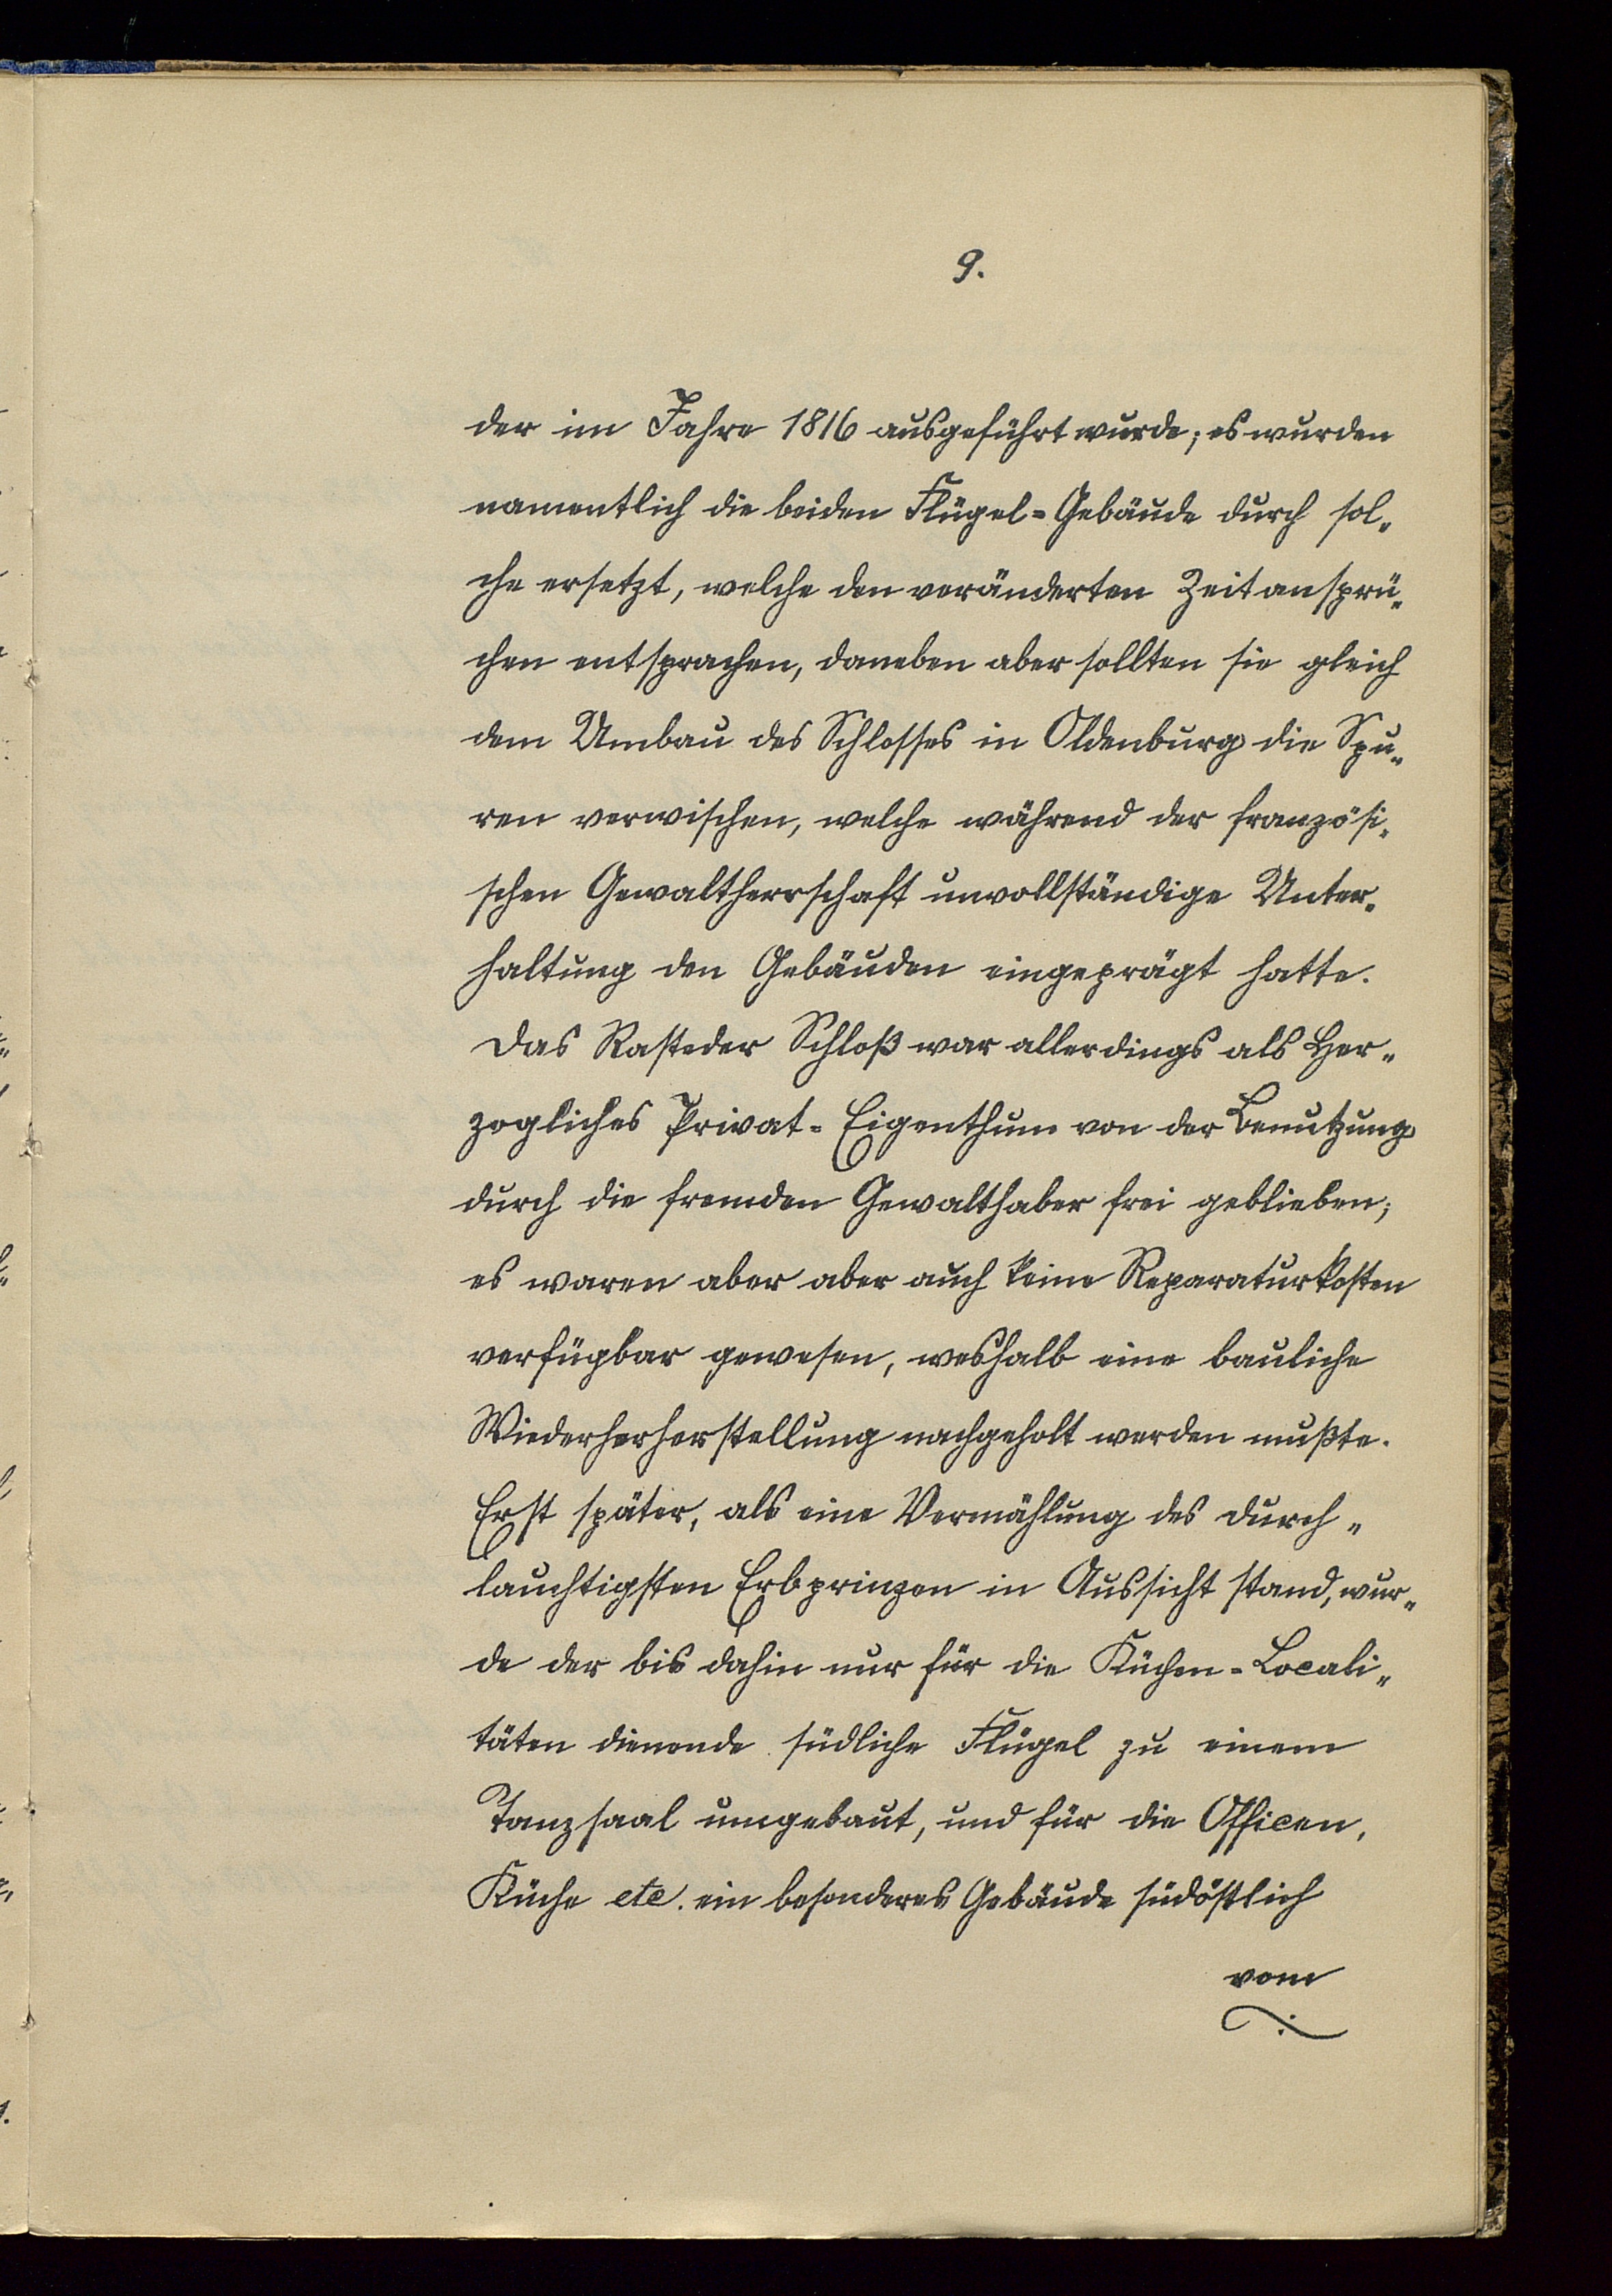 9.
der im Jahre 1816 ausgeführt wurde; es wurden
namentlich die beiden Flügel=Gebäude durch sol„
che ersetzt, welche den veränderten Zeitansprü„
chen entsprachen, daneben aber sollten sie gleich
dem Umbau des Schlosses in Oldenburg die Spu„
ren verwischen, welche während der französi„
schen Gewaltherrschaft unvollständige Unter„
haltung den Gebäuden eingeprägt hatte.
Das Rasteder Schloß war allerdings als Her„
zogliches Privat=Eigenthum von der Benutzung
durch die fremden Gewalthaber frei geblieben;
es waren aber aber auch keine Reparaturkosten
verfügbar gewesen, weshalb eine bauliche
Wiederherherstellung nachgeholt werden mußte.
Erst später, als eine Vermählung des Durch„
lauchtigsten Erbprinzen in Aussicht stand, wur„
de der bis dahin nur für die Küchen=Locali„
täten dienende südliche Flügel zu einem
Tanzsaal umgebaut, und für die Officen,
Küche etc. ein besonderes Gebäude südöstlich
vom